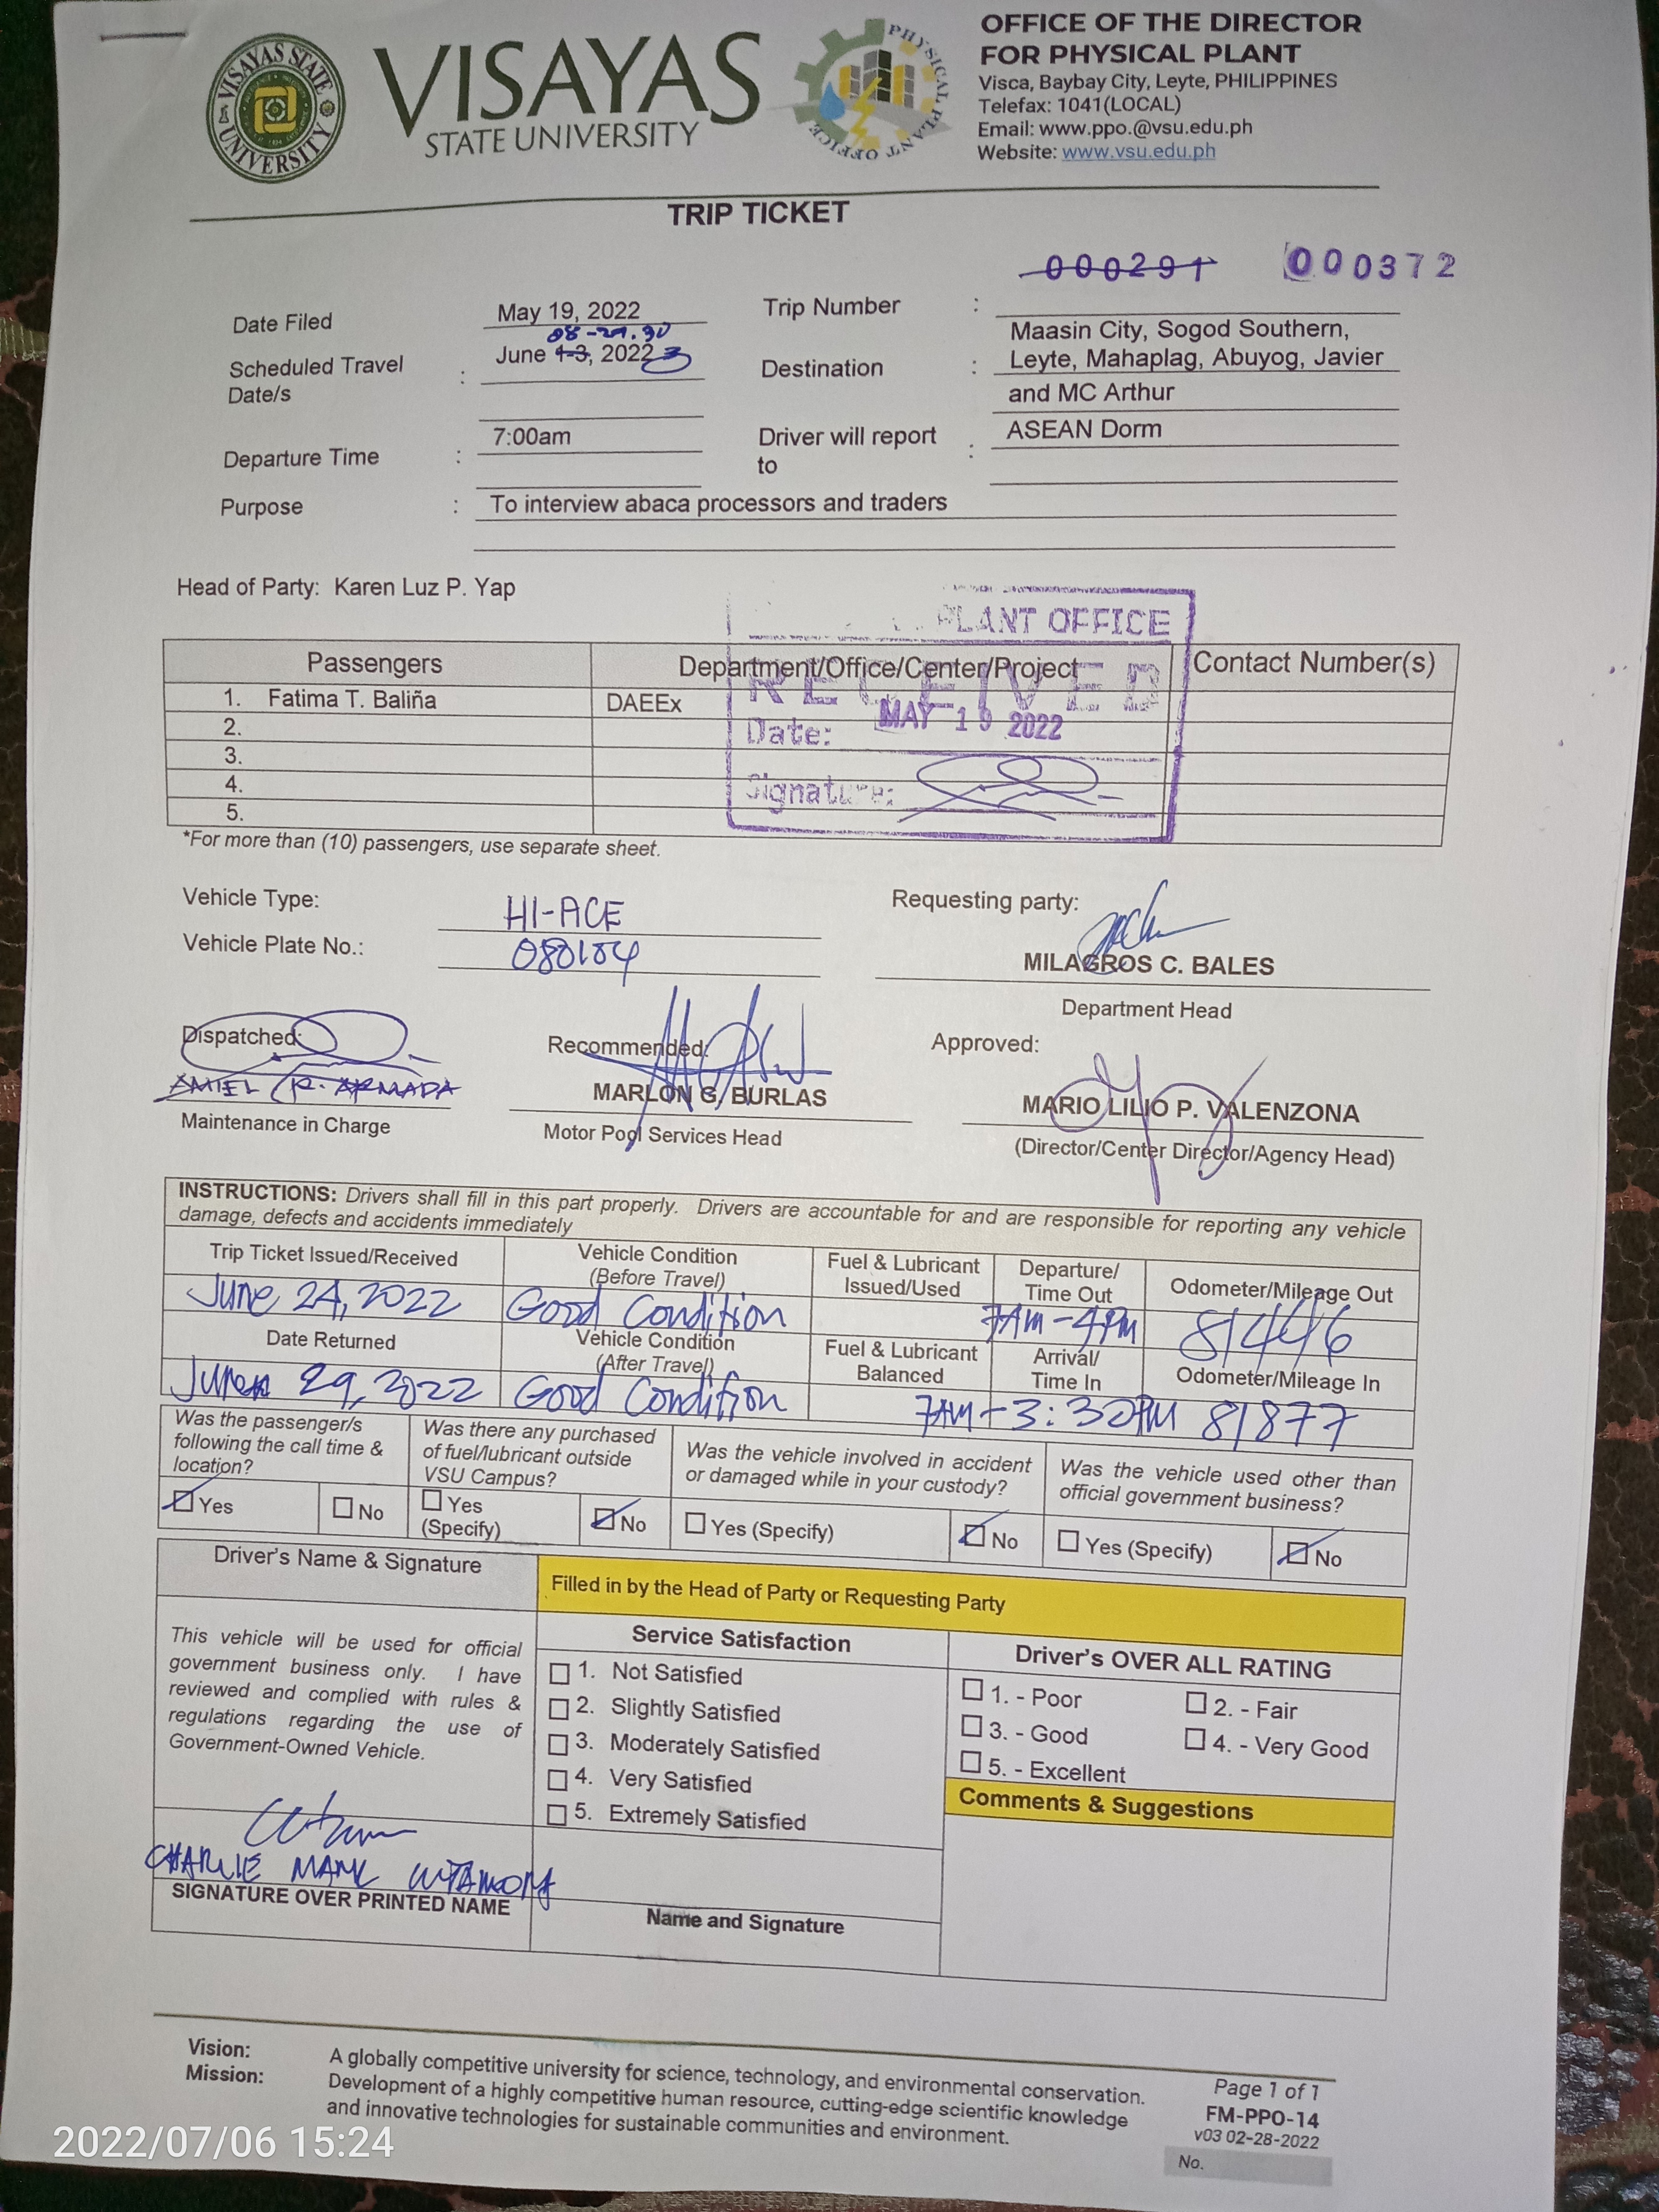 VISAYAS STATE UNIVERSITY
VISAYAS
STATE UNIVERSITY
PHYSICAL PLANT OFFICE
OFFICE OF THE DIRECTOR
FOR PHYSICAL PLANT
Visca, Baybay City, Leyte, PHILIPPINES
Telefax: 1041(LOCAL)
Email: www.ppo.@vsu.edu.ph
Website: www.vsu.edu.ph
TRIP TICKET
000291 000372
Date Filed May 19, 2022 Trip Number :
Scheduled Travel Date/s : June 1-3, 2022
Destination : Maasin City, Sogod Southern,
Leyte, Mahaplag, Abuyog, Javier
and MC Arthur
Departure Time : 7:00am Driver will report to : ASEAN Dorm
Purpose : To interview abaca processors and traders
Head of Party: Karen Luz P. Yap
PLANT OFFICE
RECEIVED
Date: MAY 19 2022
Signature:
Passengers Department/Office/Center/Project Contact Number(s)
1. Fatima T. Baliña DAEEx
2.
3.
4.
5.
*For more than (10) passengers, use separate sheet.
Vehicle Type: HI-ACE Requesting party:
Vehicle Plate No.: 080104
MILAGROS C. BALES
Department Head
Dispatched: Recommended: Approved:
AMIEL R. ARMADA MARLON G. BURLAS MARIO LILIO P. VALENZONA
Maintenance in Charge Motor Pool Services Head (Director/Center Director/Agency Head)
INSTRUCTIONS: Drivers shall fill in this part properly. Drivers are accountable for and are responsible for reporting any vehicle
damage, defects and accidents immediately
Trip Ticket Issued/Received Vehicle Condition (Before Travel) Fuel & Lubricant Issued/Used Departure/ Time Out Odometer/Mileage Out
June 24, 2022 Good Condition 7AM-4PM 81446
Date Returned Vehicle Condition (After Travel) Fuel & Lubricant Balanced Arrival/ Time In Odometer/Mileage In
June 29, 2022 Good Condition 7AM-3:30PM 81877
Was the passenger/s following the call time & location?
Was there any purchased of fuel/lubricant outside VSU Campus?
Was the vehicle involved in accident or damaged while in your custody?
Was the vehicle used other than official government business?
Yes No Yes (Specify) No Yes (Specify) No Yes (Specify) No
Driver's Name & Signature
Filled in by the Head of Party or Requesting Party
This vehicle will be used for official
government business only. I have
reviewed and complied with rules &
regulations regarding the use of
Government-Owned Vehicle.
CHARLIE MARK
SIGNATURE OVER PRINTED NAME
Service Satisfaction
1. Not Satisfied
2. Slightly Satisfied
3. Moderately Satisfied
4. Very Satisfied
5. Extremely Satisfied
Name and Signature
Driver's OVER ALL RATING
1. - Poor 2. - Fair
3. - Good 4. - Very Good
5. - Excellent
Comments & Suggestions
Vision: A globally competitive university for science, technology, and environmental conservation.
Mission: Development of a highly competitive human resource, cutting-edge scientific knowledge
and innovative technologies for sustainable communities and environment.
Page 1 of 1
FM-PPO-14
v03 02-28-2022
No.
2022/07/06 15:24